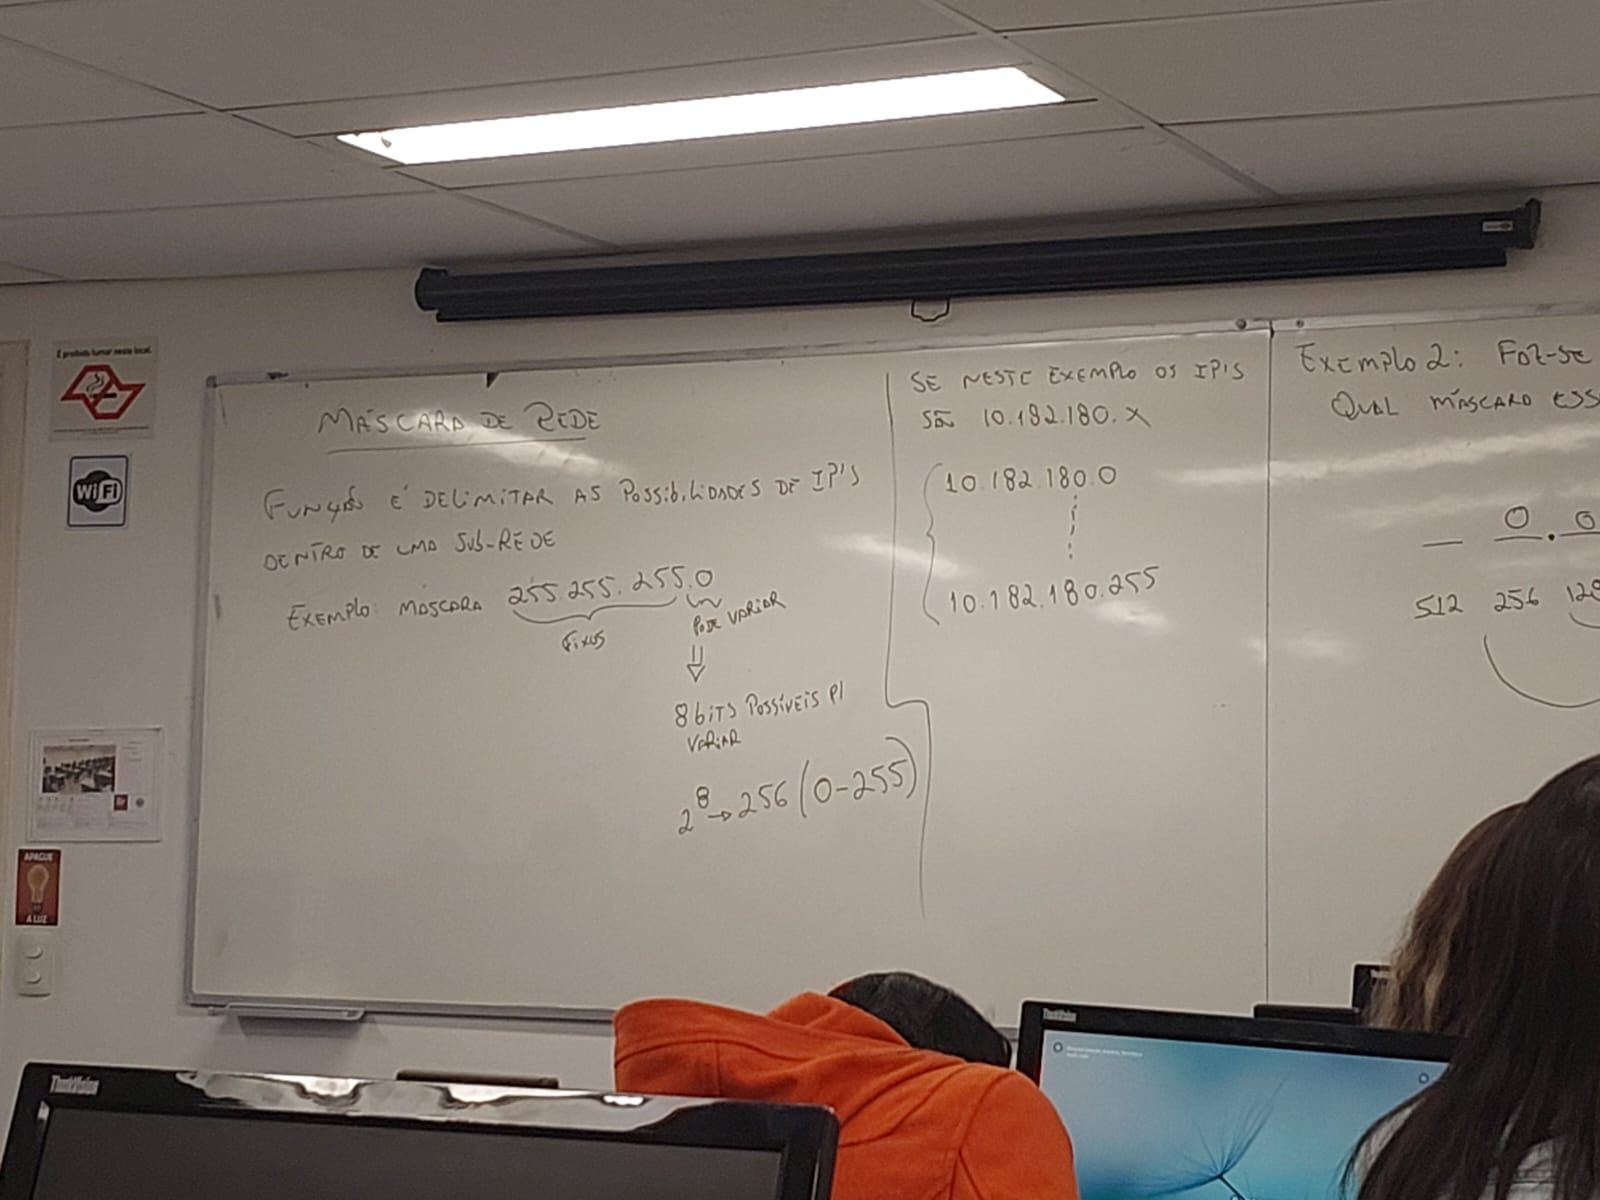 É proibido fumar neste local.
WiFi
APAGUE
A LUZ
MÁSCARA DE REDE
FUNÇÃO É DELIMITAR AS POSSIBILIDADES DE IP'S
DENTRO DE UMA SUB-REDE
EXEMPLO: MÁSCARA 255.255.255.0
FIXOS
PODE VARIAR
8 BITS POSSÍVEIS P/
VARIAR
2⁸ → 256 (0-255)
SE NESTE EXEMPLO OS IP'S
SÃO 10.182.180.X
10.182.180.0
10.182.180.255
EXEMPLO 2: FOZ-SE
QUAL MÁSCARA ESS
_ 0 . 0
512 256 128
ThinkVision
ThinkVision